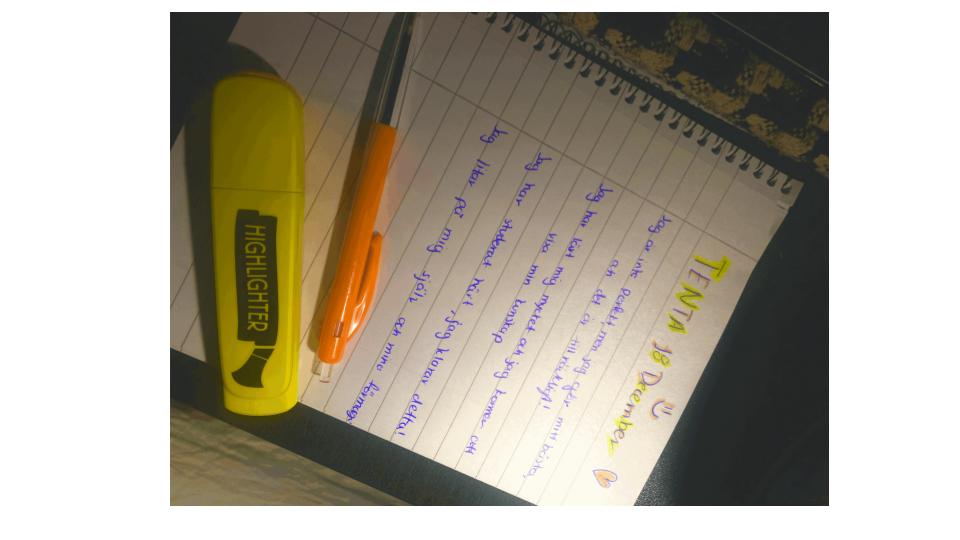 TENTA 18 December
Jag är inte perfekt, men jag gör mitt bästa,
och det är tillräckligt!
Jag har lärt mig mycket och jag komer att
visa min kunskap
Jag har studerat hårt, jag klarar detta!
Jag litar på mig själv och mina förmåga
HIGHLIGHTER